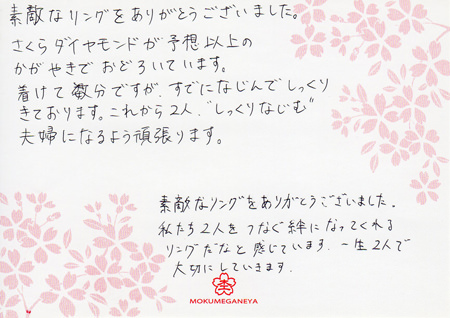 素敵なリングをありがとうございました。
さくらダイヤモンドが予想以上の
かがやきでおどろいています。
着けて数分ですが、すでになじんでしっくり
きております。これから2人、"しっくりなじむ"
夫婦になるよう頑張ります。
素敵なリングをありがとうございました。
私たち2人をつなぐ絆になってくれる
リングだなと感じています。一生2人で
大切にしていきます。
MOKUMEGANEYA